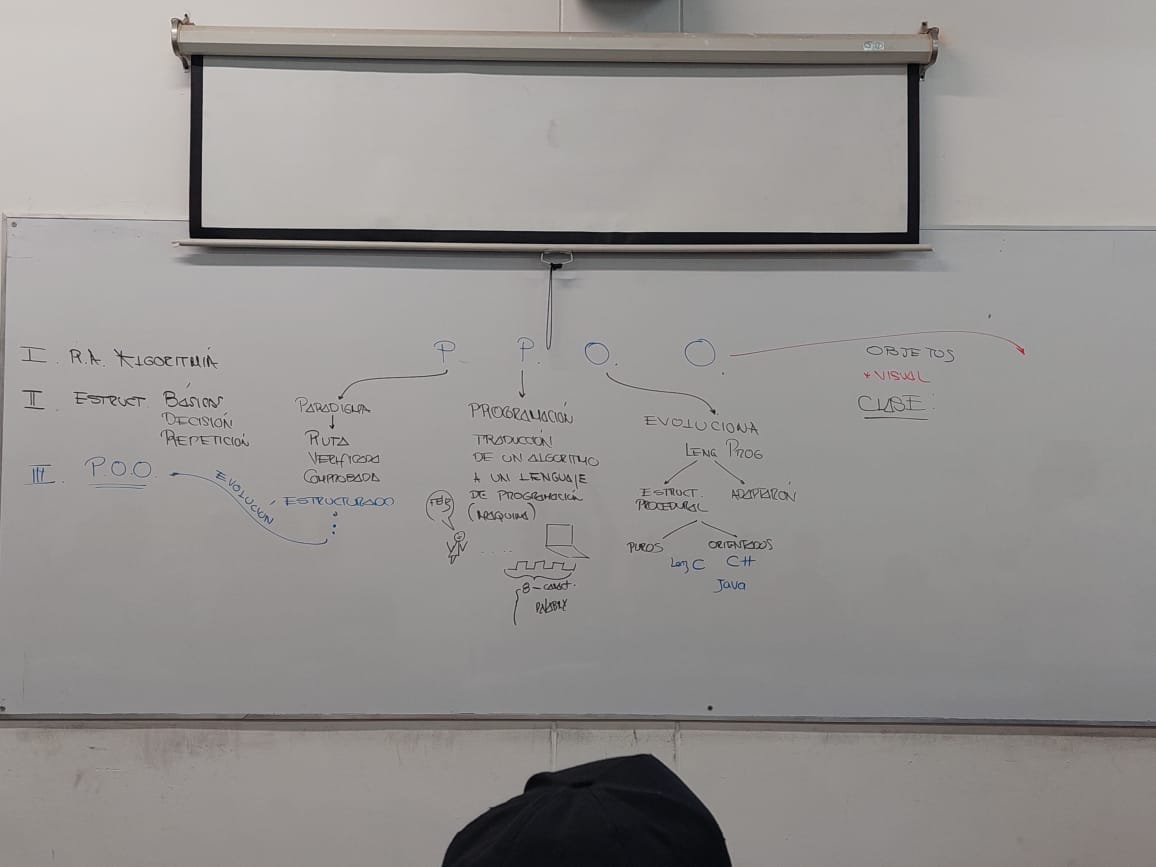 I. R.A. ALGORITMIA
II. ESTRUCT. BÁSICAS
DECISIÓN
REPETICIÓN
III. P.O.O.
EVOLUCIÓN
P P. O. O.
PARADIGMA
RUTA
VERIFICADA
COMPROBADA
ESTRUCTURADO
PROGRAMACIÓN
TRADUCCIÓN
DE UN ALGORITMO
A UN LENGUAJE
DE PROGRAMACIÓN
(MAQUINA)
8-caract.
PALABRA
EVOLUCIONA
LENG PROG
ESTRUCT.
PROCEDURAL
ADAPTARÓN
PUROS
ORIENTADOS
Leng C
C#
Java
OBJETOS
* VISUAL
CLASE: